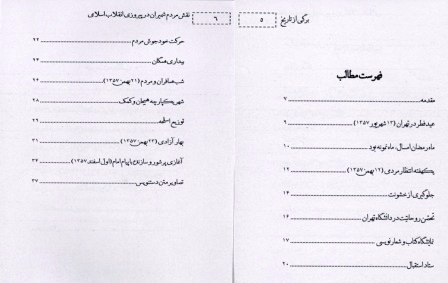 برگی از تاریخ ۵
فهرست مطالب
مقدمه ۷
عید فطر در تهران (۱۳ شهریور ۱۳۵۷) ۹
ماه رمضان امسال، ماه نمونه بود ۱۰
یک هفته انتظار مردمی (۱۲ بهمن ۱۳۵۷) ۱۲
جلوگیری از خشونت ۱۴
تحصن روحانیت در دانشگاه تهران ۱۶
نمایشگاه کتاب و شعارنویسی ۱۷
ستاد استقبال ۲۰
۶ نقش مردم در پیروزی انقلاب اسلامی
حرکت خودجوش مردم ۲۲
بیداری همگان ۲۳
شب همافران و مردم (۲۱ بهمن ۱۳۵۷) ۲۴
شهر یکپارچه هیجان و کمک ۲۸
توزیع اسلحه ۲۹
بهار آزادی (۲۲ بهمن ۱۳۵۷) ۳۱
آغازی پرشور و سازنده با پیام امام (اول اسفند ۱۳۵۷) ۳۴
تصاویر متن دستنویس ۳۷